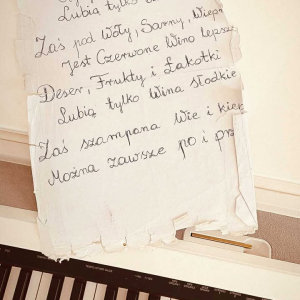 Lubią tylko
Zaś pod Woły, Sarny, Wiepr
Jest Czerwone Wino lepsze
Deser, Frukty i Łakotki
Lubią tylko Wina słodkie
Zaś szampana Wie i kier
Można zawsze po i prz